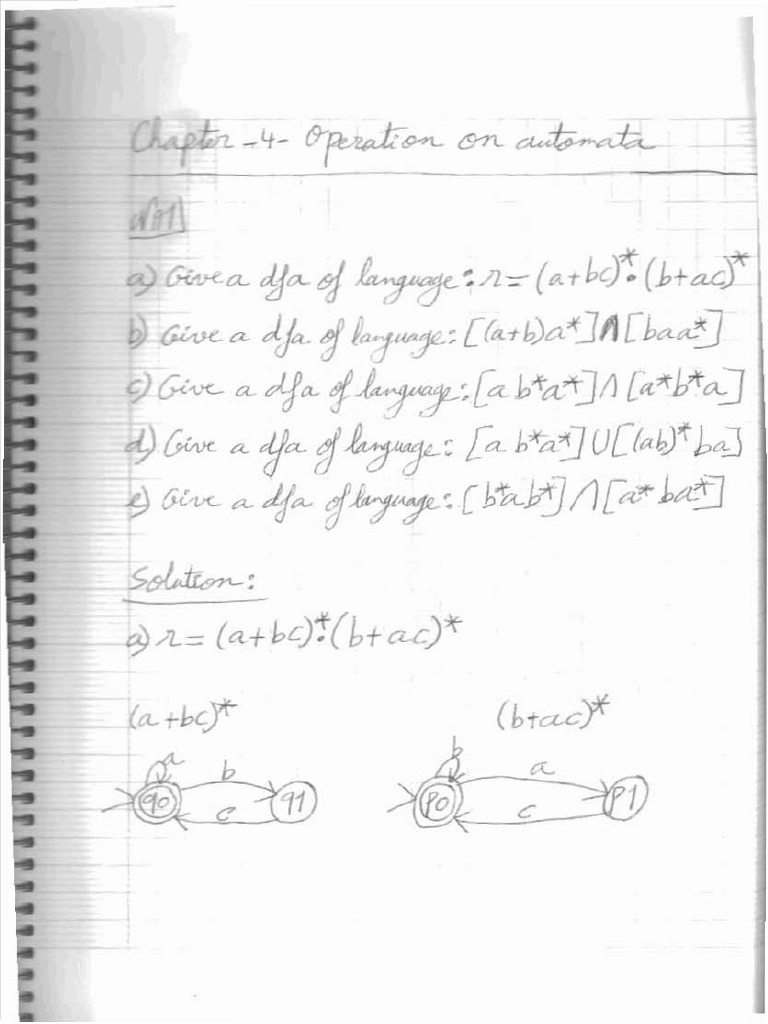 Chapter -4- Operation on automata
a) Give a dfa of language: r = (a+bc)*.(b+ac)*
b) Give a dfa of language: [(a+b)a*]∩[baa*]
c) Give a dfa of language: [ab*a*]∩[a*b*a]
d) Give a dfa of language: [ab*a*]∪[(ab)*ba]
e) Give a dfa of language: [b*ab*]∩[a*ba*]
Solution:
a) r = (a+bc)*.(b+ac)*
(a+bc)* (b+ac)*
a b b a
q0 q1 p0 p1
c c